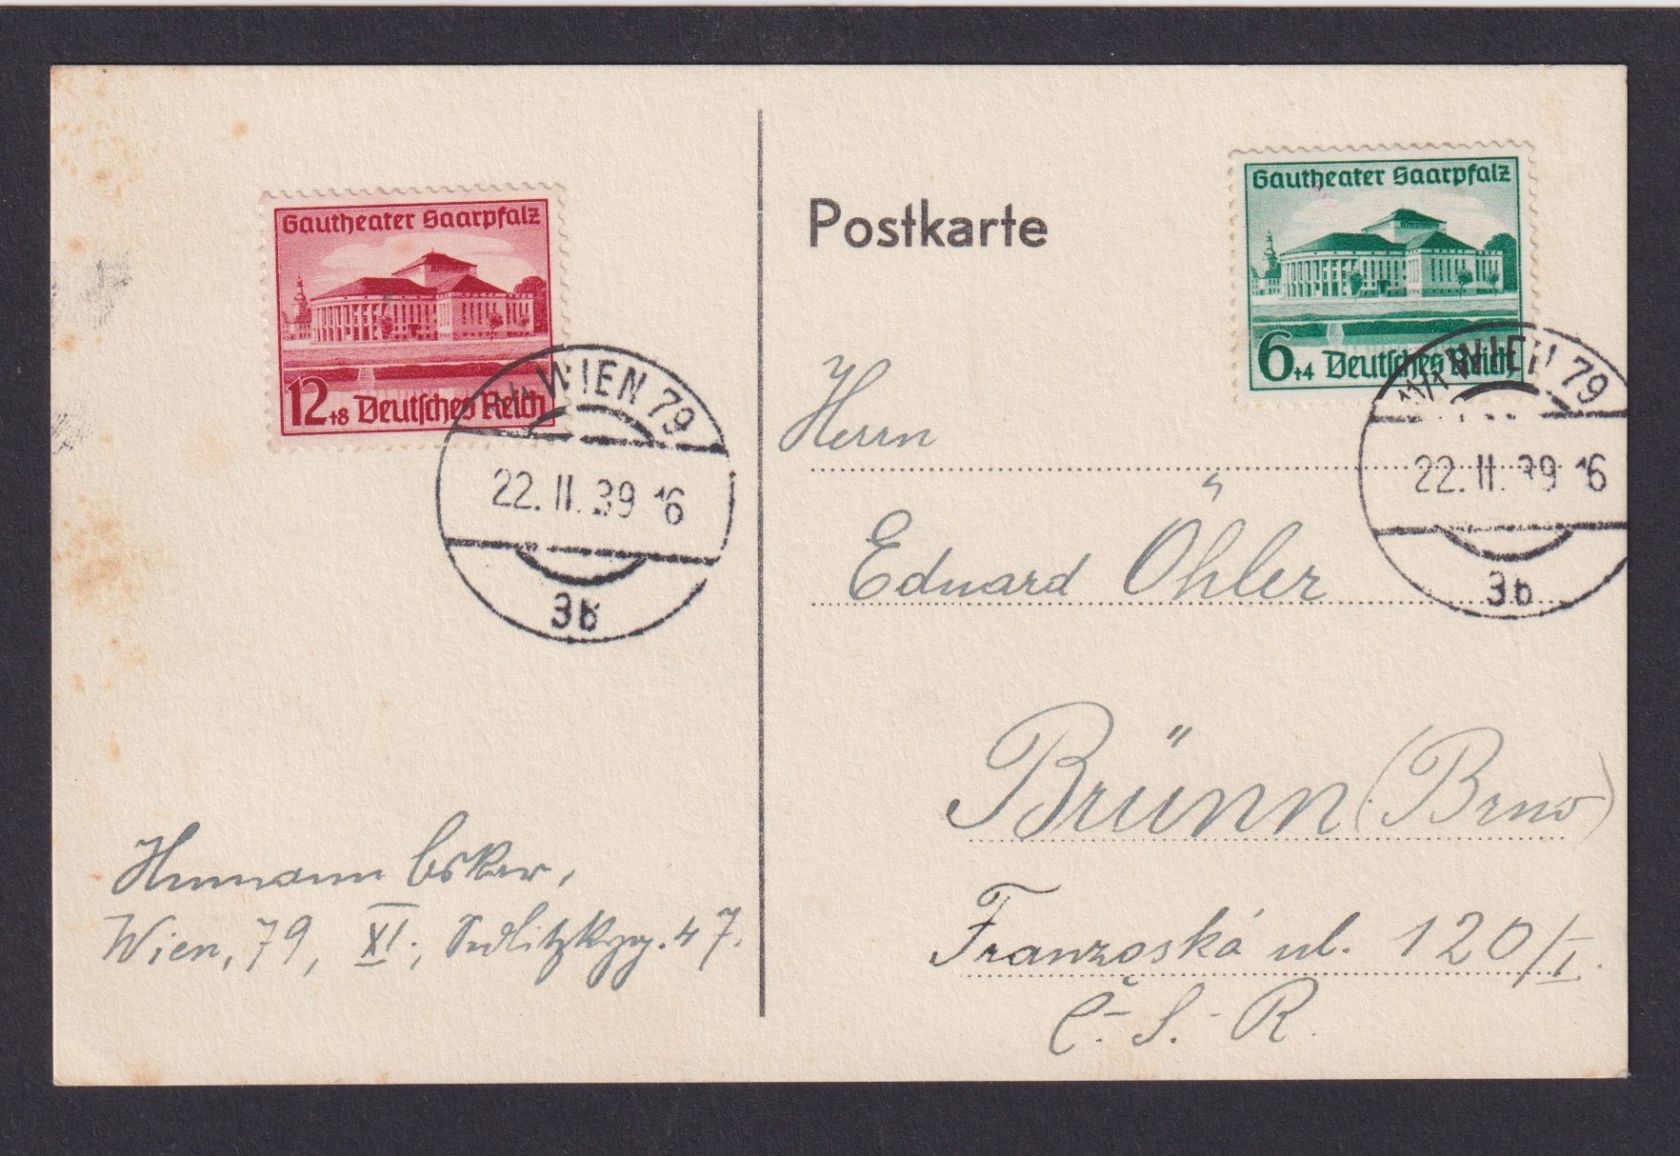 Gautheater Saarpfalz
12+8 Deutsches Reich
WIEN 79
22.II.39 16
3b
Postkarte
Gautheater Saarpfalz
6+4 Deutsches Reich
11/1 WIEN 79
22.II.39 16
3b
Herrn
Eduard Öhler
Brünn (Brno)
Franzoská ul. 120/I.
Č.-S.-R.
Oskar,
Wien, 79, XI., 47.